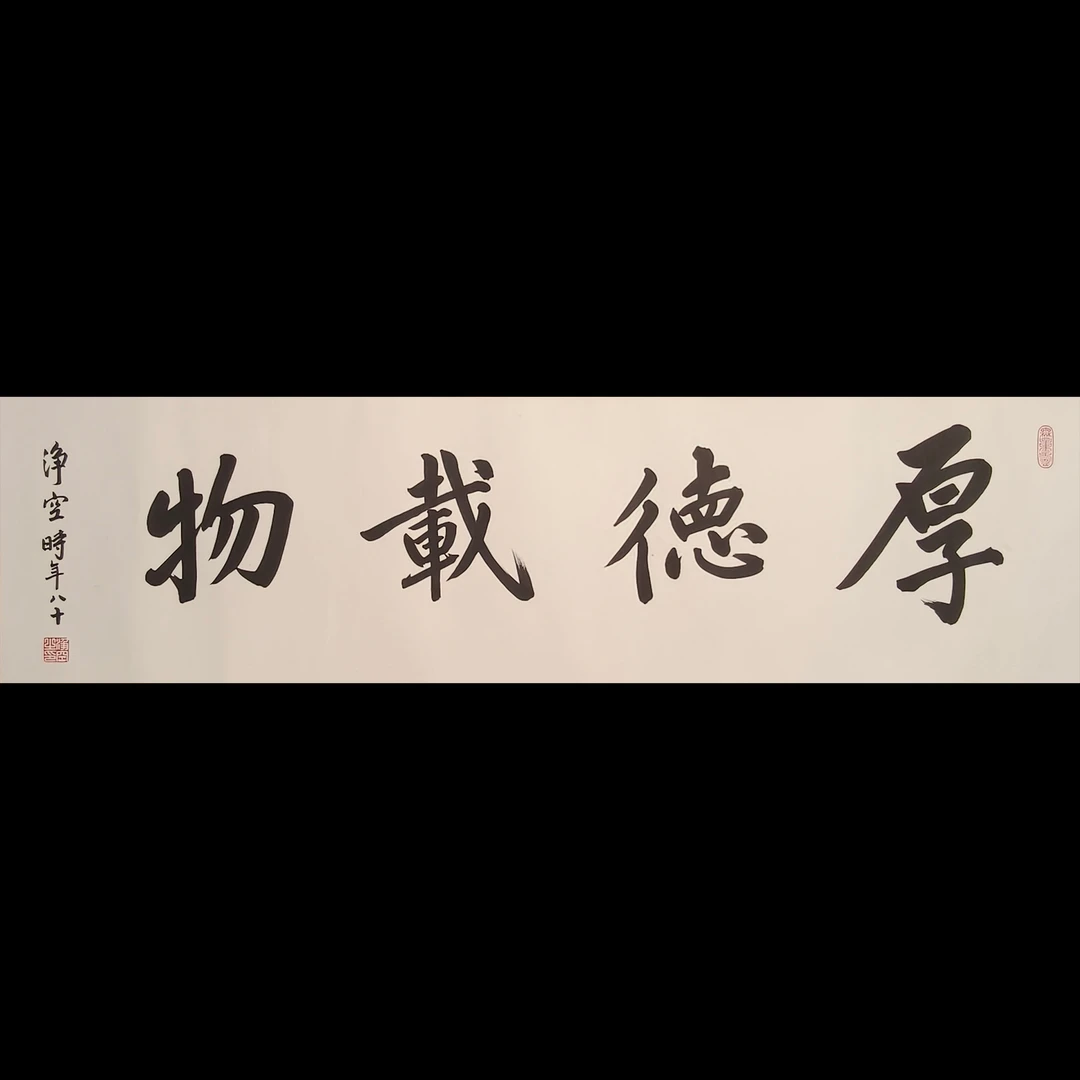 厚德載物
淨空時年八十